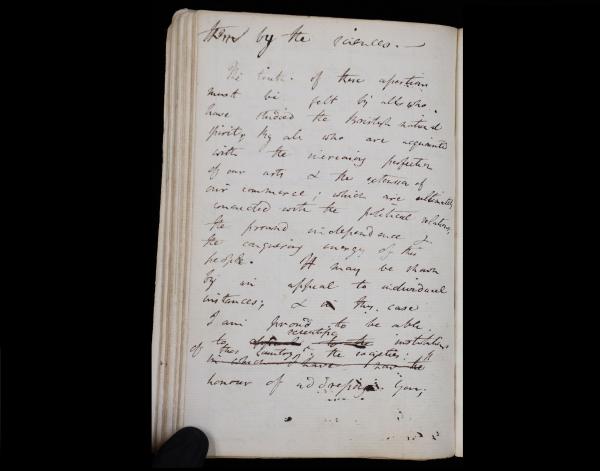 them by the sciences. —
The truth of these assertions
must be felt by all who
have studied the British national
spirit, by all who are acquainted
with the increasing perfection
of our arts & the extension of
our commerce; which are ultimately
connected with the political relations,
the proud independence &
the conquering energy of this
people. It may be shown
by an appeal to individual
instances; & in this case
I am proud to be able
scientific
to appeal to the institutions
of this Country & the societies
in which I have now the
honour of addressing You,